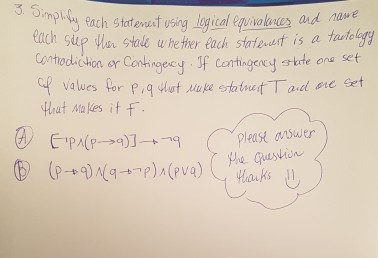 3. Simplify each statement using logical equivalences and name
each step then state whether each statement is a tautology
Contradiction or Contingency. If Contingency state one set
of values for p, q that make statment T and one set
that makes it F.
Ⓐ [¬p∧(p→q)]→¬q
Ⓑ (p→q)∧(q→¬p)∧(p∨q)
please answer
the question
thanks !!